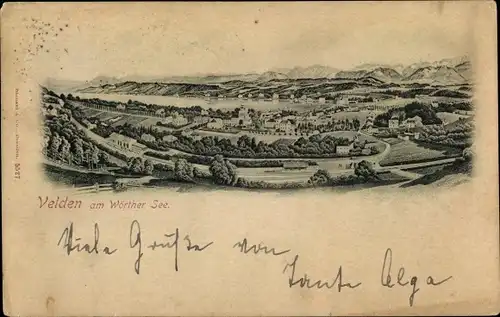 Velden am Wörther See.
Viele Grüße von
Tante Olga
5027